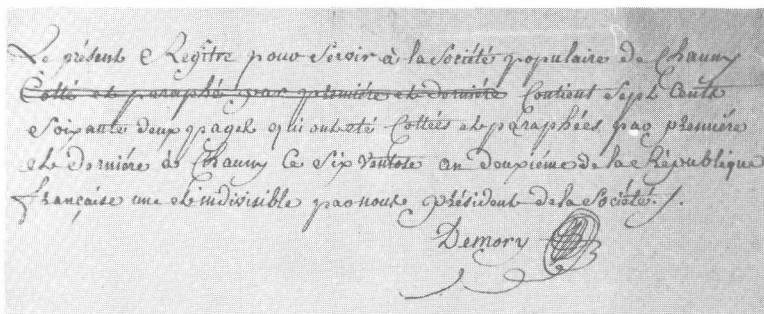 Le présent Registre pour servir à la Société populaire de Chauny
Cotté et paraphé par première et dernière Contient Sept Cents
Soixante deux pages qui ont été Cottées et paraphées par première
et dernière à Chauny Ce Six Ventose an deuxième de la République
française une et indivisible par nous président de la Société ./.
Demory